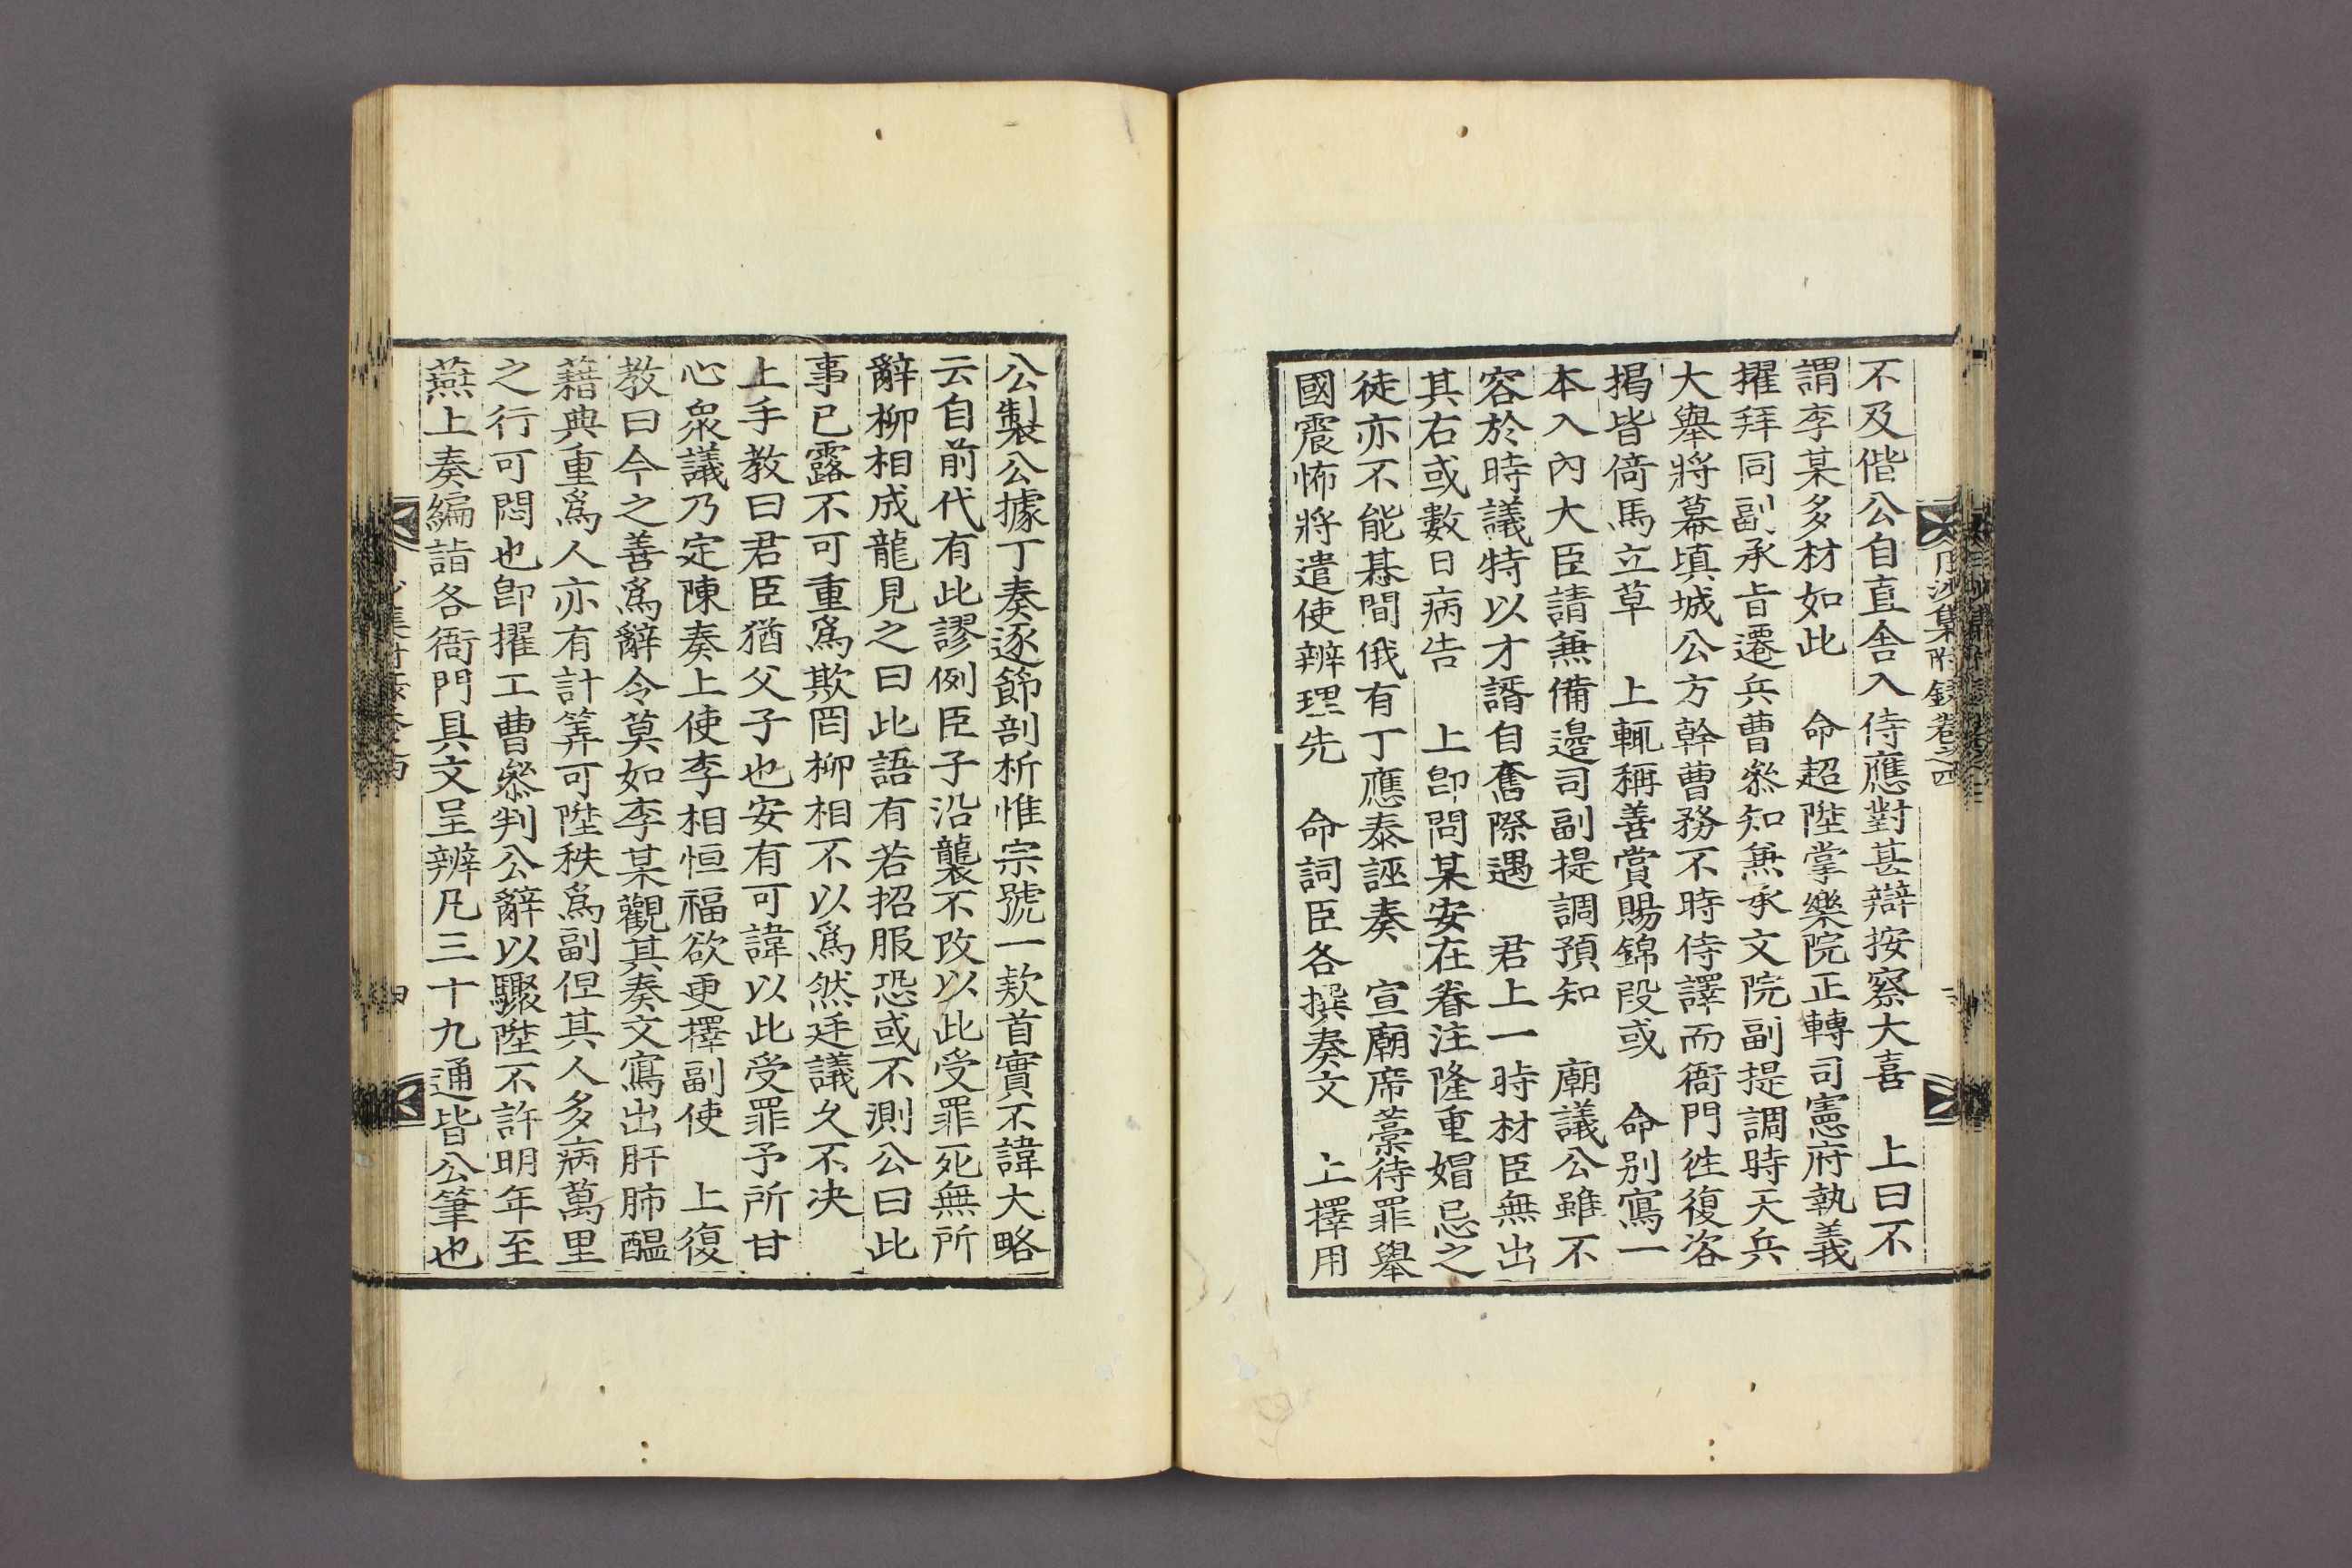 月沙集附錄卷之四
不及偕公自直舍入侍應對甚辯按察大喜 上曰不
謂李某多材如此 命超陞掌樂院正轉司憲府執義
擢拜同副承旨遷兵曹叅知兼承文院副提調時天兵
大舉將幕塡城公方幹曹務不時侍譯而衙門徃復咨
揭皆倚馬立草 上輒稱善賞賜錦段或 命別寫一
本入內大臣請兼備邊司副提調預知 廟議公雖不
容於時議特以才諝自奮際遇 君上一時材臣無出
其右或數日病告 上卽問某安在眷注隆重娼忌之
徒亦不能惎間俄有丁應泰誣奏 宣廟席藁待罪舉
國震怖將遣使辨理先 命詞臣各撰奏文 上擇用
公製公據丁奏逐節剖析惟宗號一款首實不諱大略
云自前代有此謬例臣子沿襲不改以此受罪死無所
辭柳相成龍見之曰此語有若招服恐或不測公曰此
事已露不可重爲欺罔柳相不以爲然廷議久不決
上手教曰君臣猶父子也安有可諱以此受罪予所甘
心衆議乃定陳奏上使李相恒福欲更擇副使 上復
教曰今之善爲辭令莫如李某觀其奏文寫出肝肺醞
藉典重爲人亦有計筭可陞秩爲副但其人多病萬里
之行可悶也卽擢工曹叅判公辭以驟陞不許明年至
燕上奏編詣各衙門具文呈辨凡三十九通皆公筆也